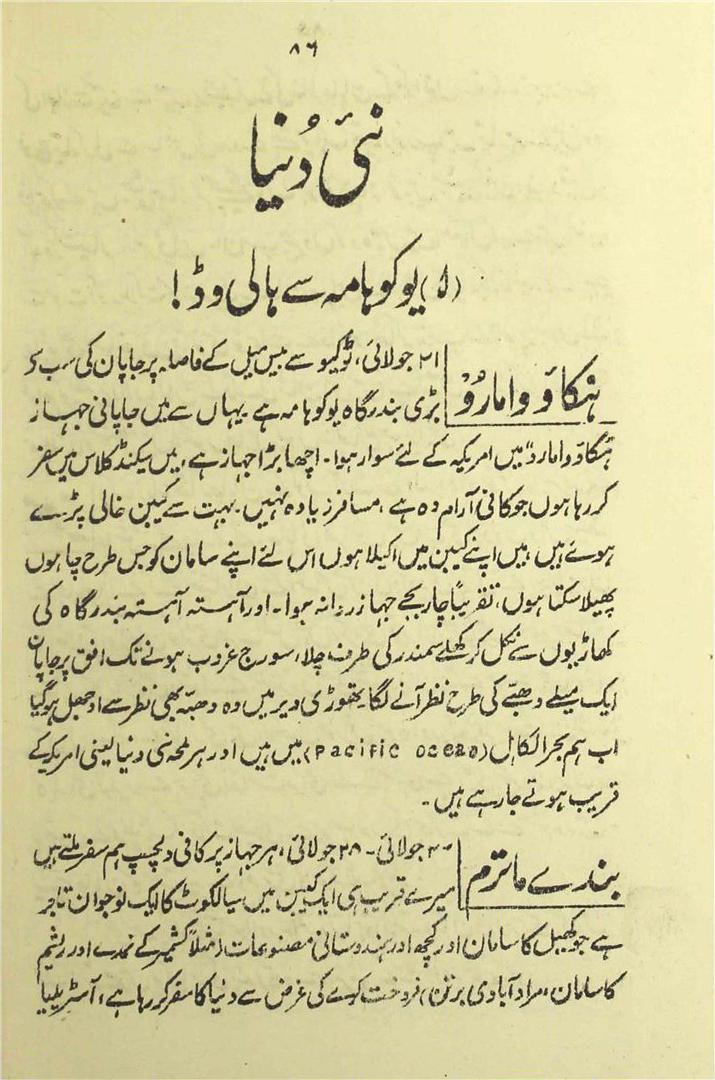 ۸۶
نئی دُنیا
(۱) یوکوہامہ سے ہالی وڈ!
ہنکاؤ وامارُوْ
۲۱ جولائی، ٹوکیو سے بیس میل کے فاصلہ پر جاپان کی سب سے
بڑی بندرگاہ یوکوہامہ ہے۔ یہاں سے میں جاپانی جہاز
"ہنگاؤ وامارو" میں امریکہ کے لئے سوار ہوا۔ اچھا بڑا جہاز ہے، میں سیکنڈ کلاس میں سفر
کر رہا ہوں جو کافی آرام دہ ہے، مسافر زیادہ نہیں۔ بہت سے کیبن خالی پڑے
ہوئے ہیں، میں اپنے کیبن میں اکیلا ہوں اس لئے اپنے سامان کو جس طرح چاہوں
پھیلا سکتا ہوں، تقریباً چار بجے جہاز روانہ ہوا۔ اور آہستہ آہستہ بندرگاہ کی
کھاڑیوں سے نکل کر کھلے سمندر کی طرف چلا، سورج غروب ہونے تک افق پر جاپان
ایک میلے دھبّے کی طرح نظر آنے لگا۔ تھوڑی دیر میں وہ دھبّہ بھی نظر سے اوجھل ہوگیا
اب ہم بحر الکاہل (Pacific ocean) میں ہیں اور ہر لمحہ نئی دنیا یعنی امریکہ کے
قریب ہوتے جا رہے ہیں۔
بندے ماترم
جولائی۔ ۲۸ جولائی، ہر جہاز پر کافی دلچسپ ہم سفر ملتے ہیں
میرے قریب ہی ایک کیبن میں سیالکوٹ کا ایک نوجوان تاجر
ہے جو کھیل کا سامان اور کچھ اور ہندوستانی مصنوعات (مثلاً کشمیر کے نمدے اور ریشم
کا سامان، مراد آبادی برتن) فروخت کرنے کی غرض سے دنیا کا سفر کر رہا ہے، آسٹریلیا